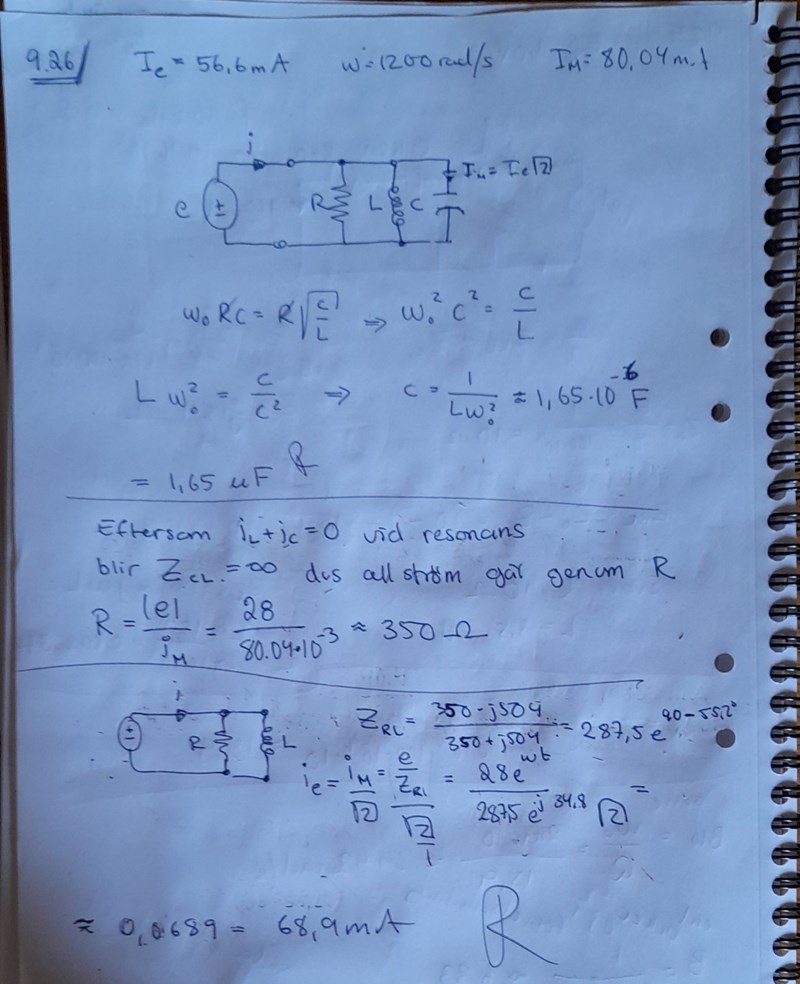 9.26/ Ie = 56,6mA w=1200 rad/s IM = 80,04mA
i
e ± R L C IM = Ie√2
w₀RC = R√(C/L) ⇒ w₀² C² = C/L
L w₀² = C/C² ⇒ C = 1/(Lw₀²) ≈ 1,65·10⁻⁶ F
= 1,65 uF R
Eftersom iL+ic=0 vid resonans
blir ZCL=∞ dvs all ström går genom R
R = |e|/iM = 28/(80.04·10⁻³) ≈ 350 Ω
i
± R L
ZRL = (350·j504)/(350+j504) = 287,5 e^(90-55,2°)
ie = iM/√2 = (e/ZRL)/(√2/1) = 28e^(wt)/(287,5 e^(j34,8) √2) =
≈ 0,0689 = 68,9mA R